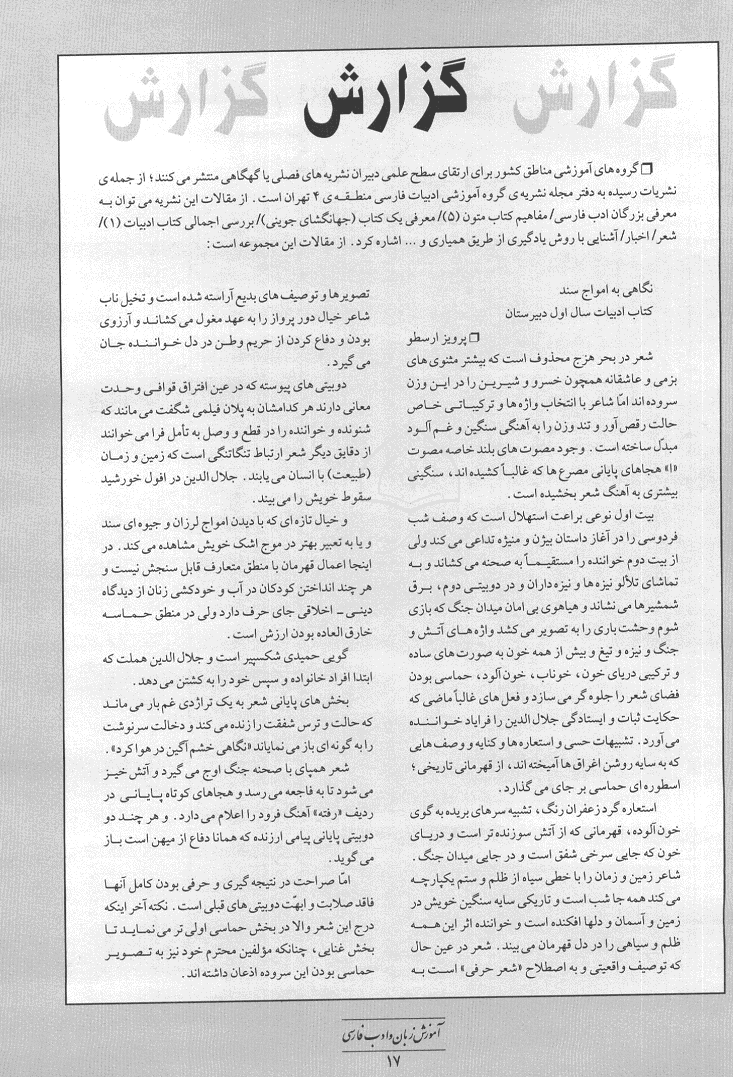 گزارش گزارش گزارش
❐ گروه های آموزشی مناطق کشور برای ارتقای سطح علمی دبیران نشریه های فصلی یا گهگاهی منتشر می کنند؛ از جمله ی
نشریات رسیده به دفتر مجله نشریه ی گروه آموزشی ادبیات فارسی منطقه ی ۴ تهران است. از مقالات این نشریه می توان به
معرفی بزرگان ادب فارسی/ مفاهیم کتاب متون (۵)/ معرفی یک کتاب (جهانگشای جوینی)/ بررسی اجمالی کتاب ادبیات (۱)/
شعر/ اخبار/ آشنایی با روش یادگیری از طریق همیاری و ... اشاره کرد. از مقالات این مجموعه است:
نگاهی به امواج سند
کتاب ادبیات سال اول دبیرستان
❐ پرویز ارسطو
شعر در بحر هزج محذوف است که بیشتر مثنوی های
بزمی و عاشقانه همچون خسرو و شیرین را در این وزن
سروده اند امّا شاعر با انتخاب واژه ها و ترکیباتی خاص
حالت رقص آور و تند وزن را به آهنگی سنگین و غم آلود
مبدّل ساخته است. وجود مصوت های بلند خاصه مصوت
«ا» هجاهای پایانی مصرع ها که غالباً کشیده اند، سنگینی
بیشتری به آهنگ شعر بخشیده است.
بیت اول نوعی براعت استهلال است که وصف شب
فردوسی را در آغاز داستان بیژن و منیژه تداعی می کند ولی
از بیت دوم خواننده را مستقیماً به صحنه می کشاند و به
تماشای تلألو نیزه ها و نیزه داران و در دوبیتی دوم، برق
شمشیرها می نشاند و هیاهوی بی امان میدان جنگ که بازی
شوم وحشت باری را به تصویر می کشد واژه های آتش و
جنگ و نیزه و تیغ و بیش از همه خون به صورت های ساده
و ترکیبی دریای خون، خوناب، خون آلود، حماسی بودن
فضای شعر را جلوه گر می سازد و فعل های غالباً ماضی که
حکایت ثبات و ایستادگی جلال الدین را فرایاد خواننده
می آورد. تشبیهات حسی و استعاره ها و کنایه و وصف هایی
که به سایه روشن اغراق ها آمیخته اند، از قهرمانی تاریخی؛
اسطوره ای حماسی بر جای می گذارد.
استعاره گرد زعفران رنگ، تشبیه سرهای بریده به گوی
خون آلوده، قهرمانی که از آتش سوزنده تر است و دریای
خون که جایی سرخی شفق است و در جایی میدان جنگ.
شاعر زمین و زمان را با خطی سیاه از ظلم و ستم یکپارچه
می کند همه جا شب است و تاریکی سایه سنگین خویش در
زمین و آسمان و دلها افکنده است و خواننده اثر این همه
ظلم و سیاهی را در دل قهرمان می بیند. شعر در عین حال
که توصیف واقعیتی و به اصطلاح «شعر حرفی» است به
تصویرها و توصیف های بدیع آراسته شده است و تخیل ناب
شاعر خیال دور پرواز را به عهد مغول می کشاند و آرزوی
بودن و دفاع کردن از حریم وطن در دل خواننده جان
می گیرد.
دوبیتی های پیوسته که در عین افتراق قوافی وحدت
معانی دارند هر کدامشان به پلان فیلمی شگفت می مانند که
شنونده و خواننده را در قطع و وصل به تأمل فرا می خوانند
از دقایق دیگر شعر ارتباط تنگاتنگی است که زمین و زمان
(طبیعت) با انسان می یابند. جلال الدین در افول خورشید
سقوط خویش را می بیند.
و خیال تازه ای که با دیدن امواج لرزان و جیوه ای سند
و یا به تعبیر بهتر در موج اشک خویش مشاهده می کند. در
اینجا اعمال قهرمان با منطق متعارف قابل سنجش نیست و
هر چند انداختن کودکان در آب و خودکشی زنان از دیدگاه
دینی ـ اخلاقی جای حرف دارد ولی در منطق حماسه
خارق العاده بودن ارزش است.
گویی حمیدی شکسپیر است و جلال الدین هملت که
ابتدا افراد خانواده و سپس خود را به کشتن می دهد.
بخش های پایانی شعر به یک تراژدی غم بار می ماند
که حالت و ترس شفقت را زنده می کند و دخالت سرنوشت
را به گونه ای باز می نمایاند «نگاهی خشم آگین در هوا کرد».
شعر همپای با صحنه جنگ اوج می گیرد و آتش خیز
می شود تا به فاجعه می رسد و هجاهای کوتاه پایانی در
ردیف «رفته» آهنگ فرود را اعلام می دارد. و هر چند دو
دوبیتی پایانی پیامی ارزنده که همانا دفاع از میهن است باز
می گوید.
امّا صراحت در نتیجه گیری و حرفی بودن کامل آنها
فاقد صلابت و ابهّت دوبیتی های قبلی است. نکته آخر اینکه
درج این شعر والا در بخش حماسی اولی تر می نماید تا
بخش غنایی، چنانکه مؤلفین محترم خود نیز به تصویر
حماسی بودن این سروده اذعان داشته اند.
آموزش زبان و ادب فارسی
۱۷